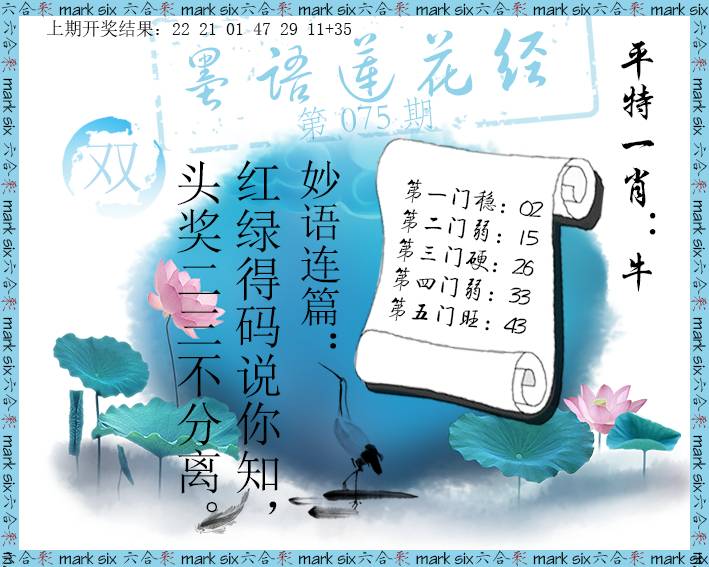 上期开奖结果：22 21 01 47 29 11+35
墨语莲花经
第 075 期
双
平特一肖：牛
妙语连篇：
红绿得码说你知，
头奖二三不分离。
第一门稳：02
第二门弱：15
第三门硬：26
第四门弱：33
第五门旺：43
mark six 六合彩 mark six 六合彩 mark six 六合彩 mark six 六合彩 mark six 六合彩